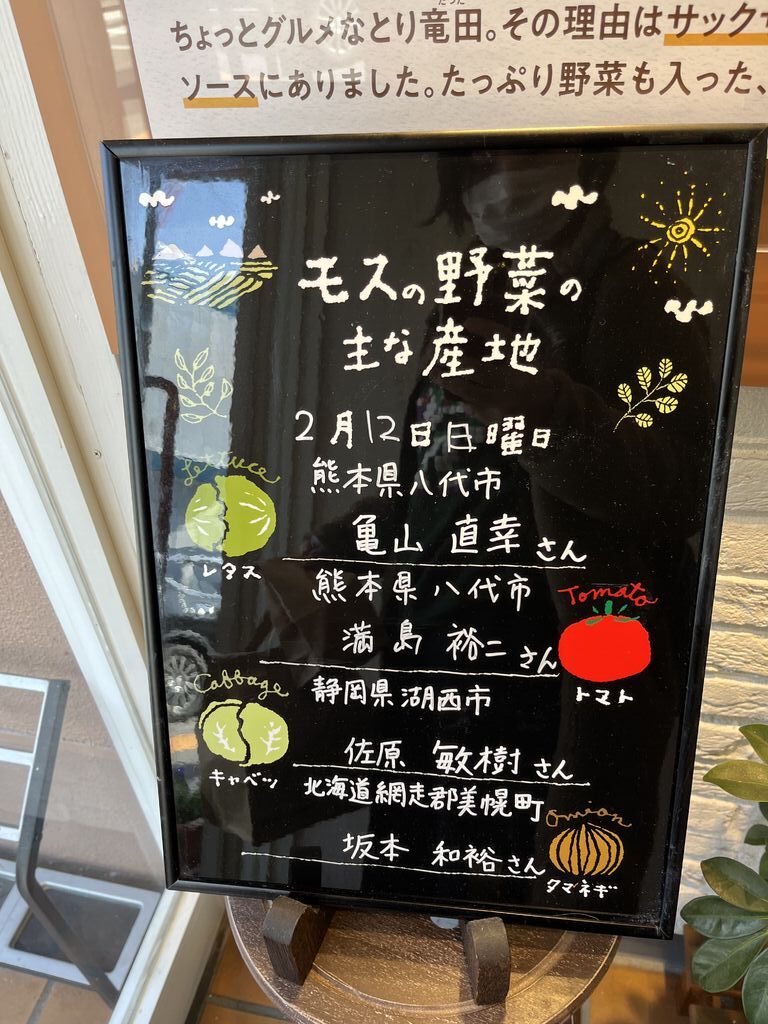 たった
ちょっとグルメなとり竜田。その理由はサック
ソースにありました。たっぷり野菜も入った、
モスの野菜の
主な産地
2月12日日曜日
Lettuce
レタス
熊本県八代市
亀山 直幸さん
熊本県八代市
満島 裕二さん
Tomato
トマト
Cabbage
キャベツ
静岡県湖西市
佐原 敏樹さん
北海道網走郡美幌町
坂本 和裕さん
Onion
タマネギ